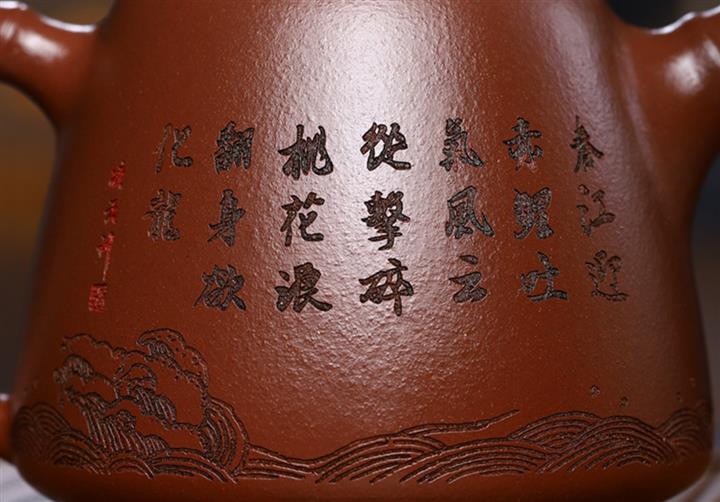 春江
赤鯉吐
氣風云
從擊碎
桃花浪
翻身欲
化龍